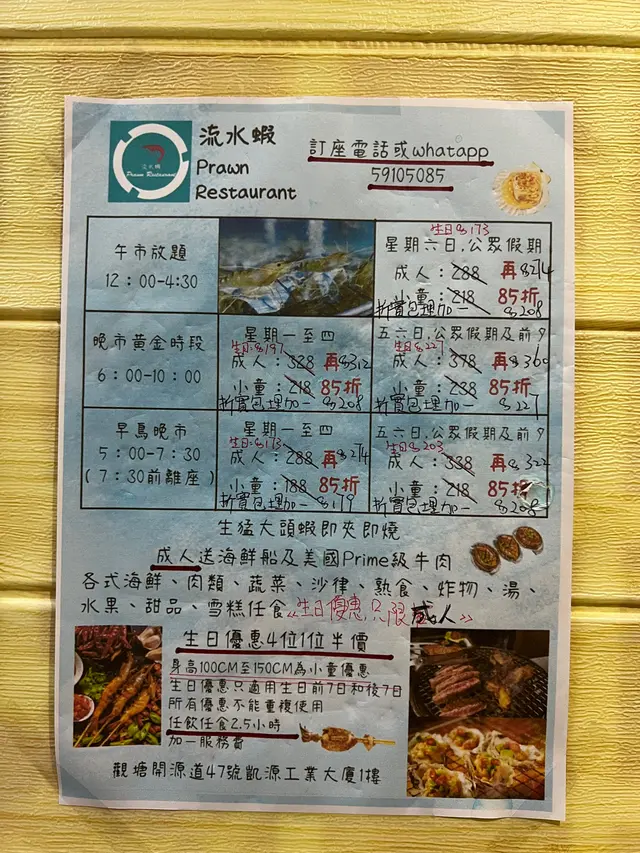 流水蝦
Prawn Restaurant
流水蝦
Prawn
Restaurant
訂座電話或whatapp
59105085
午市放題
12：00-4:30
生日$173
星期六日,公眾假期
成人：288 再$274
小童：218 85折
折實包埋加一 $208
晚市黃金時段
6：00-10：00
星期一至四
生日$197
成人：328 再$312
小童：218 85折
折實包埋加一 $208
五六日,公眾假期及前夕
生日$227
成人：378 再$360
小童：238 85折
折實包埋加一 $227
早鳥晚市
5：00-7：30
(7：30前離座)
星期一至四
生日$173
成人：288 再$274
小童：188 85折
折實包埋加一 $179
五六日,公眾假期及前夕
生日$203
成人：338 再$322
小童：218 85折
折實包埋加一 $208
生猛大頭蝦即夾即燒
成人送海鮮船及美國Prime級牛肉
各式海鮮、肉類、蔬菜、沙律、熟食、炸物、湯、
水果、甜品、雪糕任食《生日優惠只限成人》
生日優惠4位1位半價
身高100CM至150CM為小童優惠
生日優惠只適用生日前7日和後7日
所有優惠不能重複使用
任飲任食2.5小時
加一服務費
觀塘開源道47號凱源工業大廈1樓